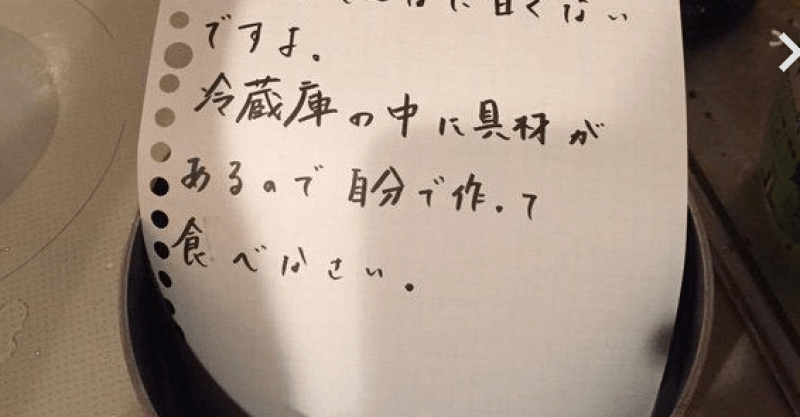 甘くない
ですよ。
冷蔵庫の中に具材が
あるので自分で作って
食べなさい.